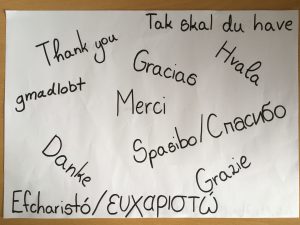 Tak skal du have
Thank you
Hvala
Gracias
gmadlobt
Merci
Spasibo/Спасибо
Danke
Grazie
Efcharistó/ευχαριστώ